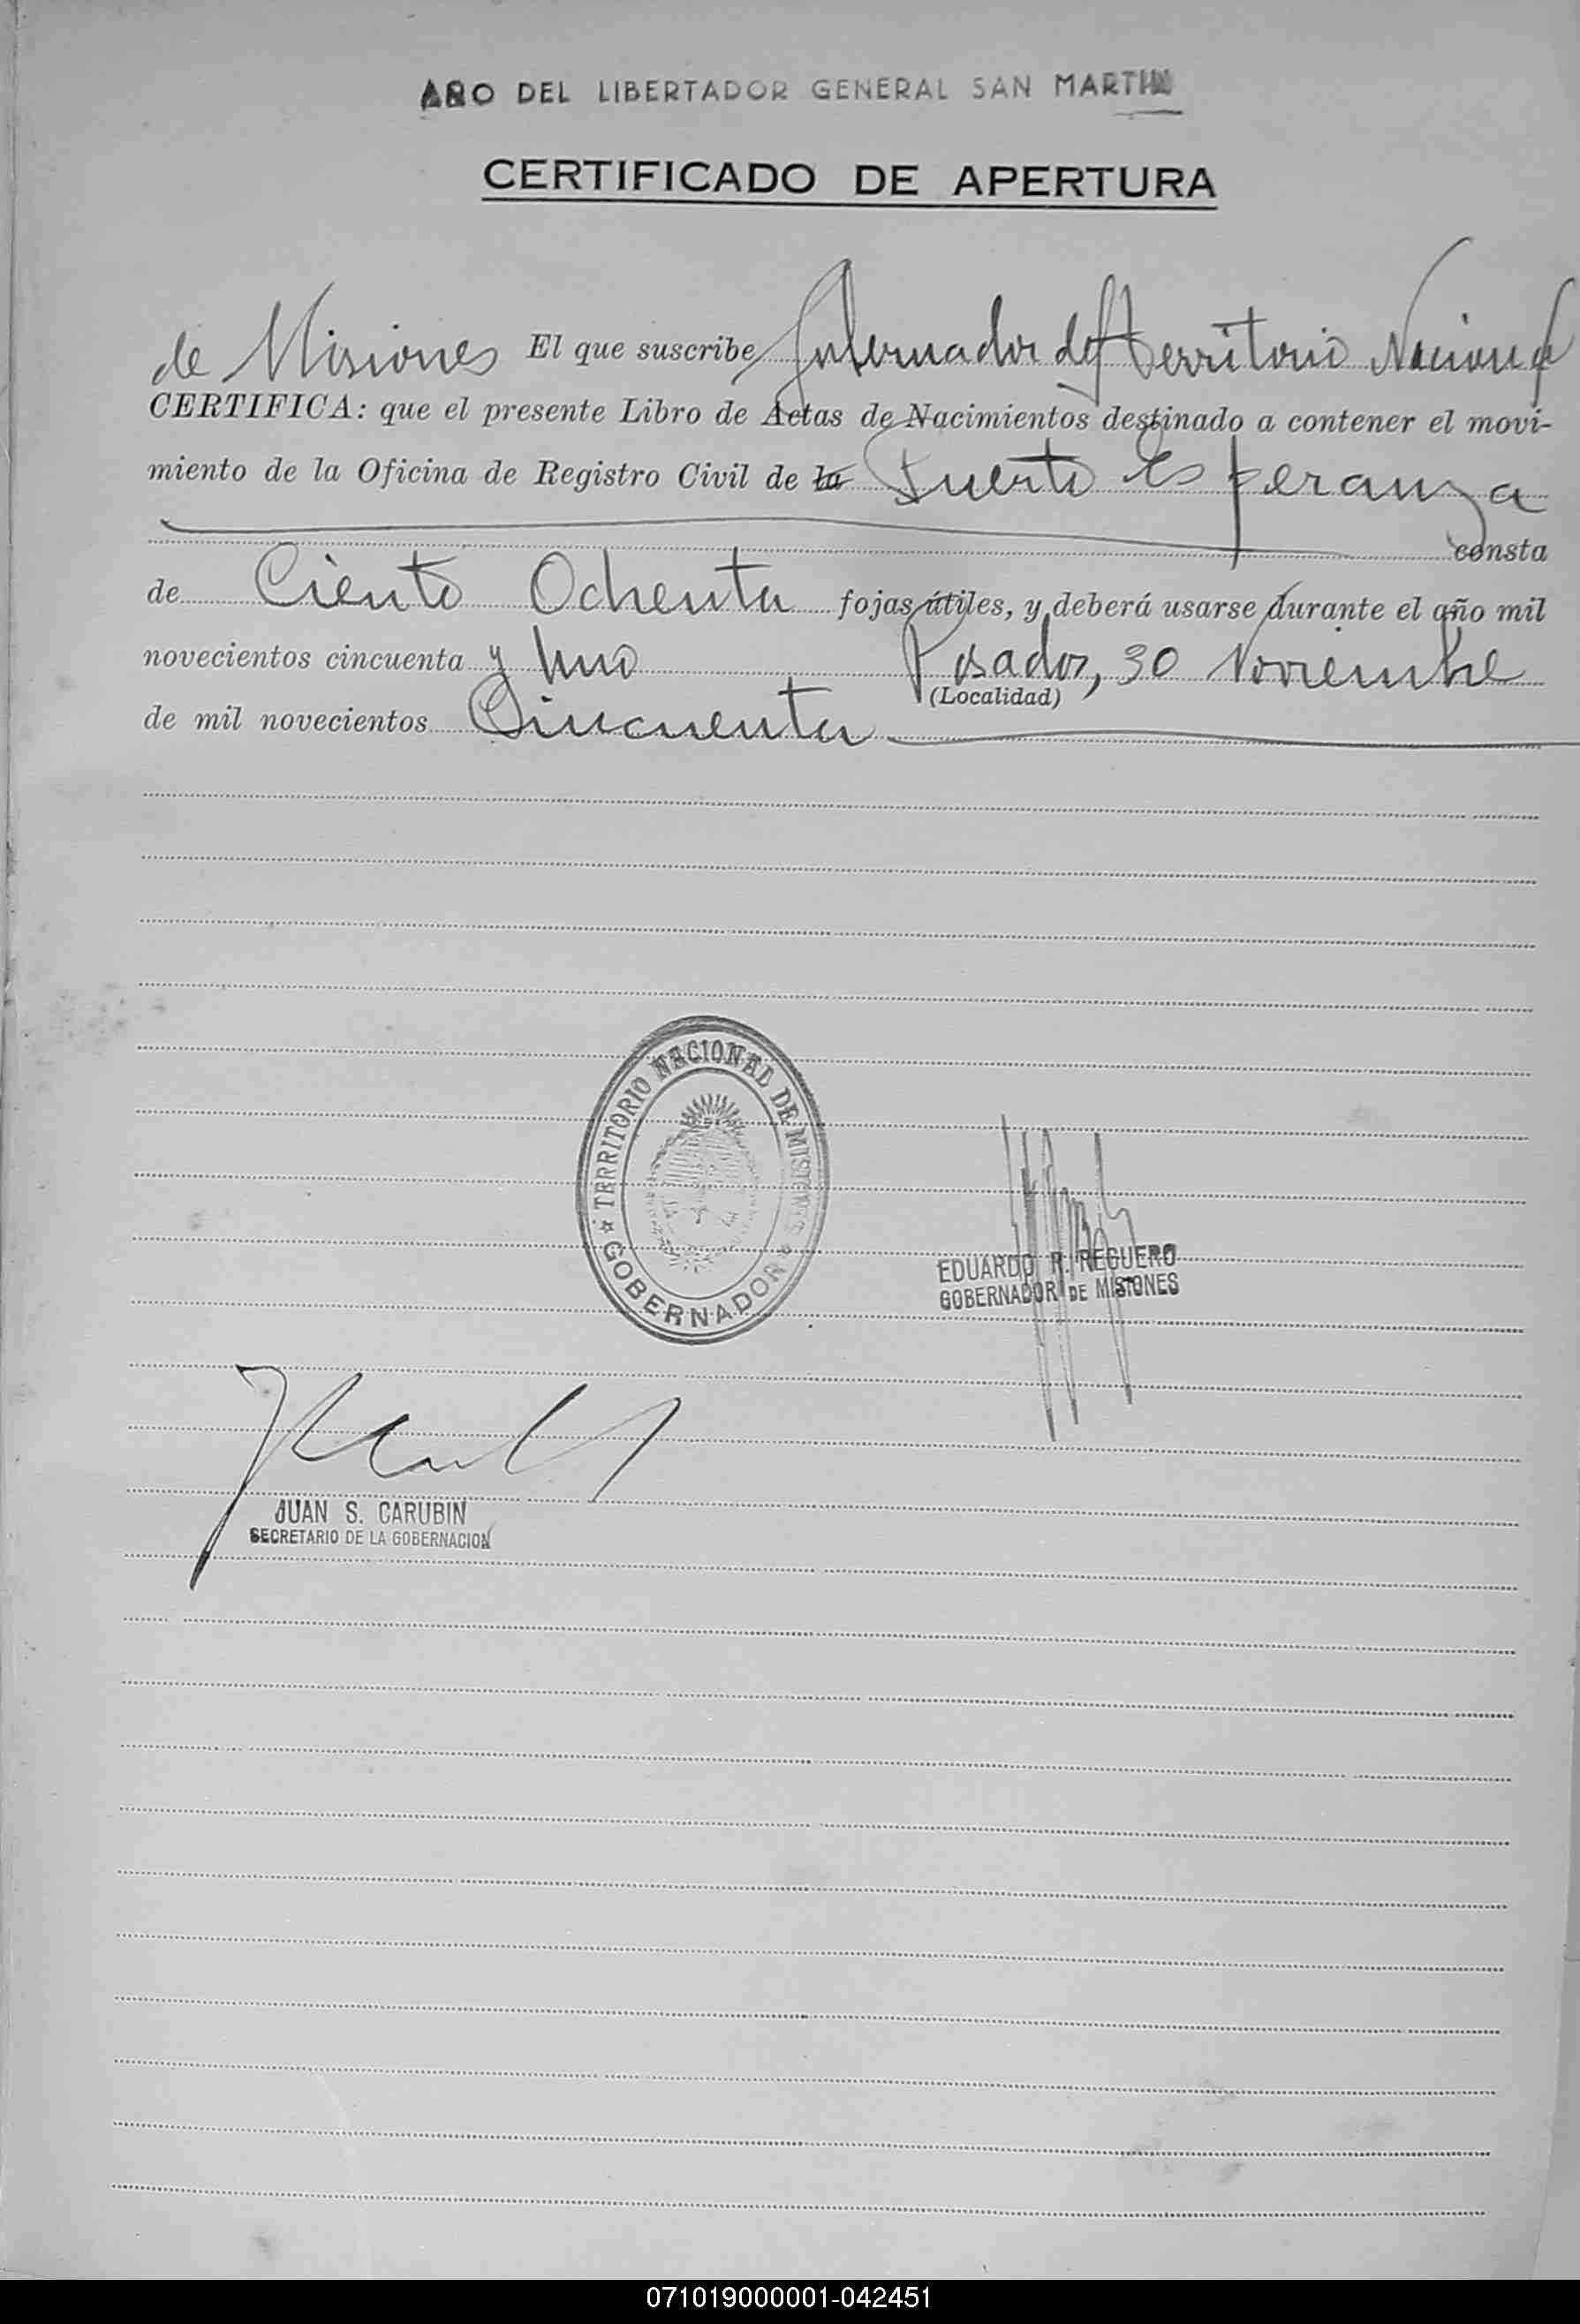 AÑO DEL LIBERTADOR GENERAL SAN MARTIN
CERTIFICADO DE APERTURA
de Misiones El que suscribe Gobernador del Territorio Nacional
CERTIFICA: que el presente Libro de Actas de Nacimientos destinado a contener el movi-
miento de la Oficina de Registro Civil de la Puerto Esperanza
consta
de Ciento Ochenta fojas útiles, y deberá usarse durante el año mil
novecientos cincuenta y uno Posadas, 30 Noviembre
(Localidad)
de mil novecientos Cincuenta
TERRITORIO NACIONAL DE MISIONES
GOBERNADOR
EDUARDO R. REGUERO
GOBERNADOR DE MISIONES
JUAN S. CARUBIN
SECRETARIO DE LA GOBERNACION
071019000001-042451